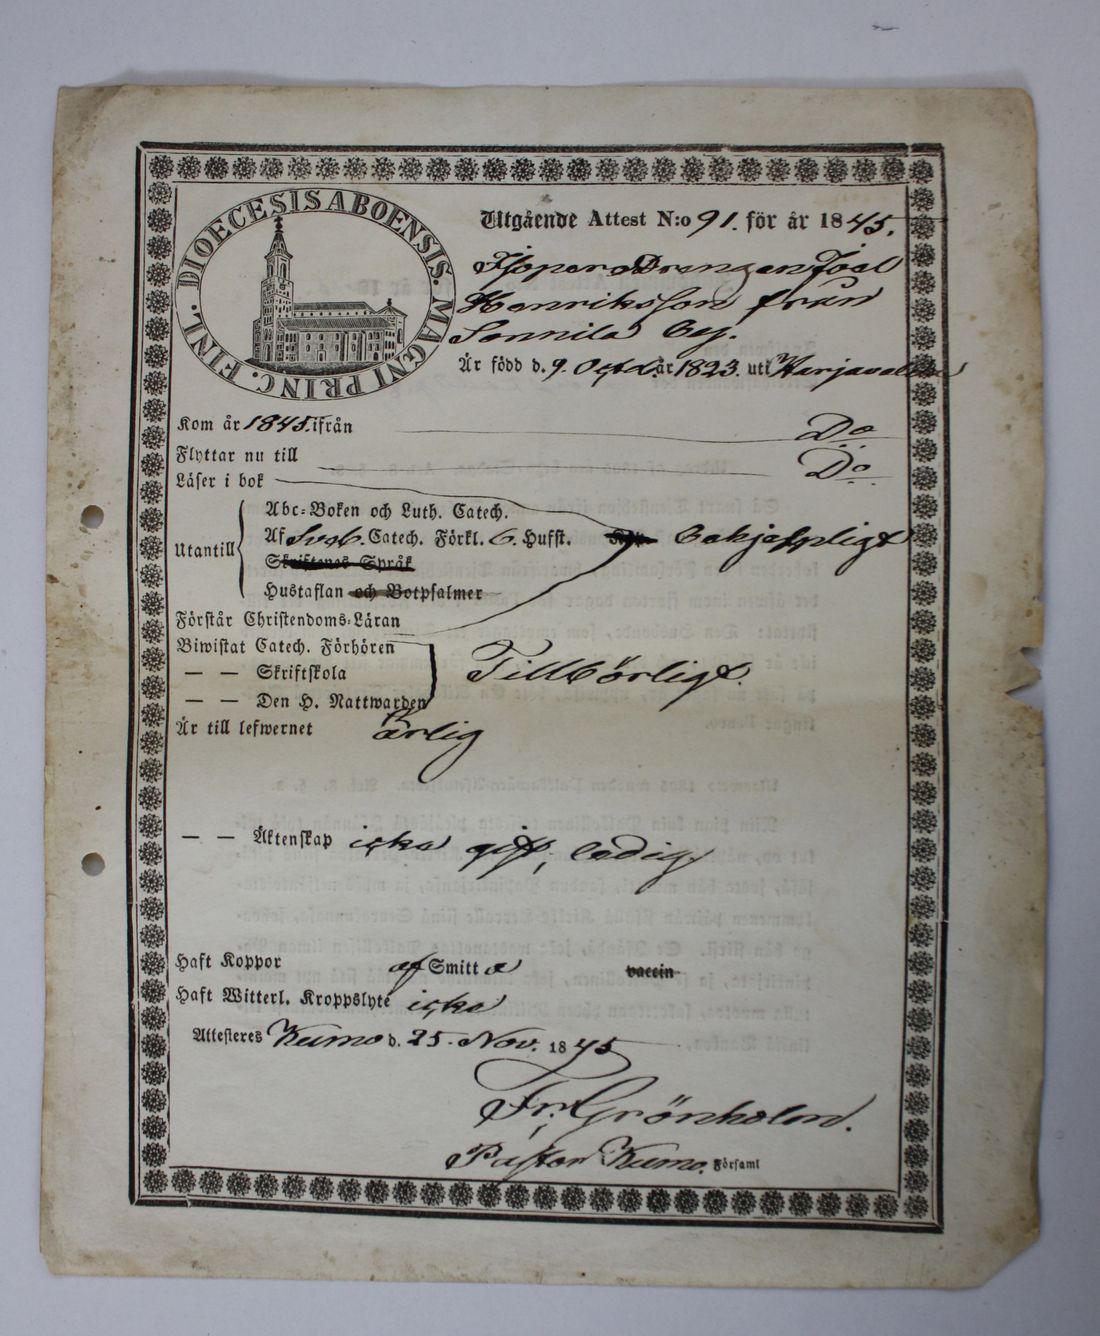 DIOECESIS ABOENSIS MAGNI PRINC. FINL.
Utgående Attest N:o 91. för år 1845.
Drengen Joel
Henriksson från
Sonnila by.
Är född d. 9. Octob. år 1823. uti Harjavalta
Kom år 1845. ifrån Do
Flyttar nu till Do
Läser i bok
Utantill
Abc-Boken och Luth. Catech.
Af Sveb. Catech. Förkl. 6. Hufst. behjelpligt
Skriftenes Språk
Hustaflan och Botpsalmer
Förstår Christendoms-Läran
Biwistat Catech. Förhören
— — Skriftskola Tillbörligt.
— — Den H. Nattwarden
Är till lefwernet ärlig
— — Äktenskap icke gift, ledig,
Haft Koppor af Smitta vaccin
Haft Witterl. Kroppslyte icke
Attesteres Kumo d. 25. Nov. 1845
Fr. Grönholm.
Pastor Kumo. Församl